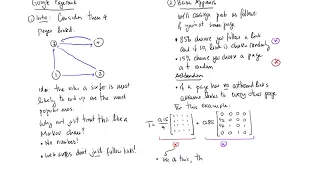 Google Pagerank
① Intro: Consider these 4
pages linked.
1
3
Idea: The sites a surfer is most
likely to end up are the most
popular ones.
Why not just treat this like a
Markov Chain?
• No numbers!
• Web surfers don't just follow links!
② Basic Approach
We'll assign prob as follows:
if you're at some page.
• 85% chance you follow a link
and if so, link is chosen randomly
• 15% chance you choose a page
at random
Addendum
• If a page has no outward links
assume links to every other page.
For this example:
T = 0.15/4 + 0.85
be a thic, th